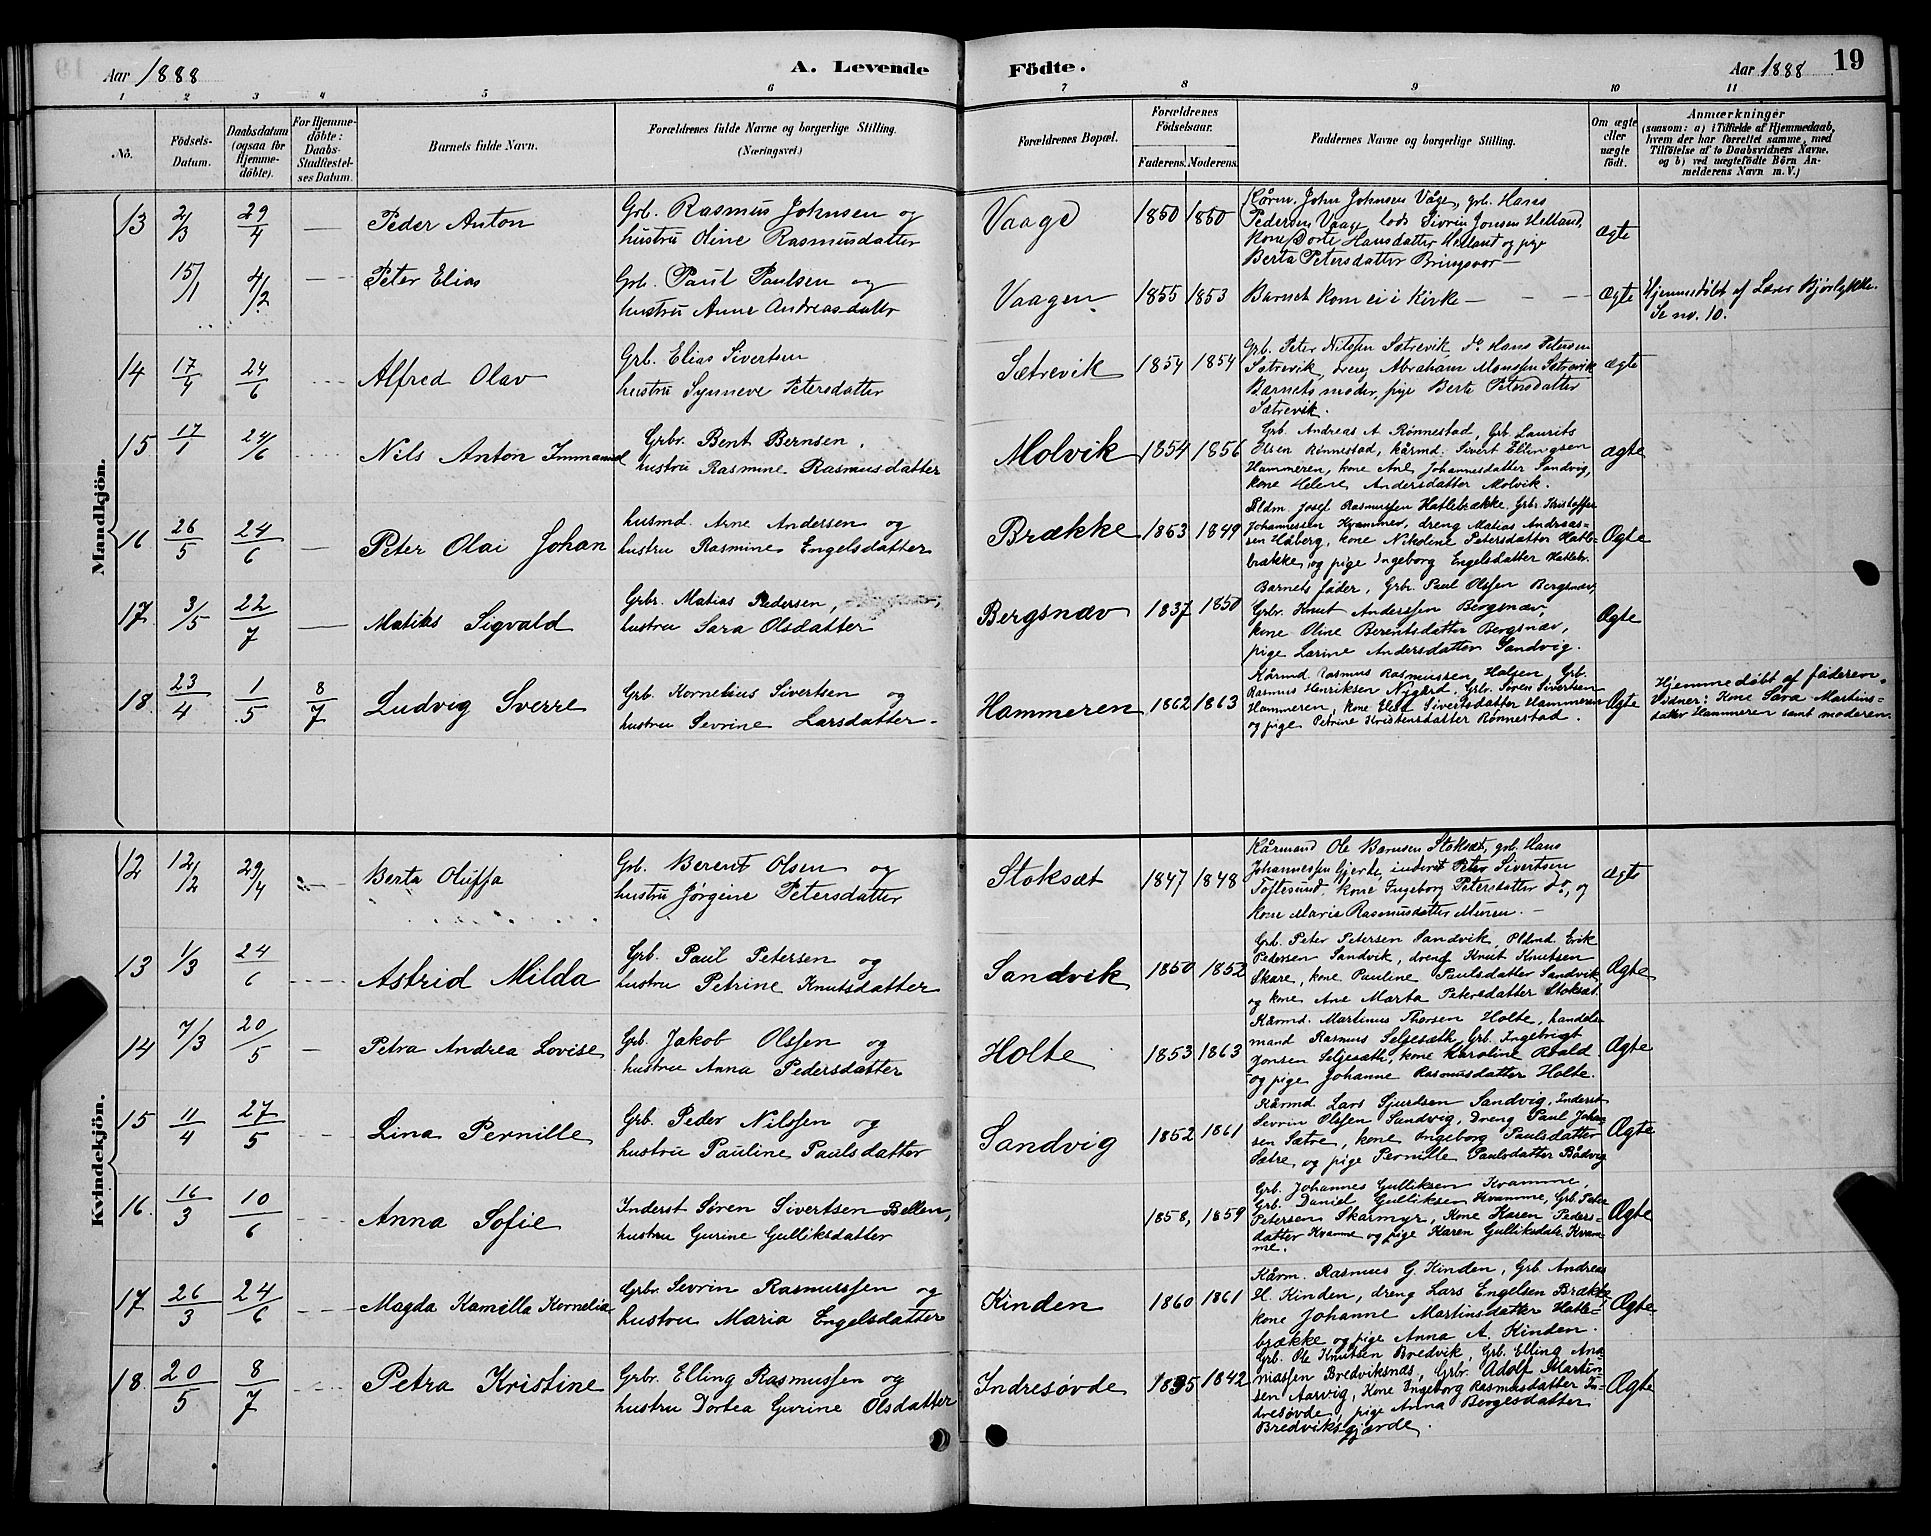 Aar 1888
A. Levende
Födte.
Aar 1888 19
1 2 3 4 5 6 7 8 9 10 11
No.
Födsels-
Datum.
Daabsdatum
(ogsaa for
Hjemme-
döbte).
For Hjemme-
döbte:
Daabs-
Stadfestel-
ses Datum.
Barnets fulde Navn.
Forældrenes fulde Navne og borgerlige Stilling.
(Næringsvei.)
Forældrenes Bopæl.
Forældrenes
Födselsaar.
Faderens. Moderens.
Faddernes Navne og borgerlige Stilling.
Om ægte
eller
uægte
födt.
Anmærkninger
(saasom: a) i Tilfælde af Hjemmedaab,
hvem der har forrettet samme, med
Tilföielse af to Daabsvidners Navne.
og b) ved uægtefödte Börn An-
melderens Navn m. V.)
Mandkjön.
13 2/3 29/4 — Peder Anton
Grb. Rasmus Johnsen og
hustru Oline Rasmusdatter
Vaage 1850 1850
Kårm. John Johnsen Våge, grb. Hans
Pedersen Vaage, lods Sivrin Jonsen Helland,
kone Dorte Hansdatter Helland og pige
Berta Petersdatter Bringsvor —
ægte
15/1 4/2 — Peter Elias
Grb. Paul Paulsen og
hustru Anne Andreasdatter
Vaagen 1855 1853 Barnet kom ei i Kirke — — —
Ægte
Hjemmedöbt af Lærer Bjørlykke.
Se no. 10.
14 17/4 24/6 Alfred Olav
Grb. Elias Sivertsen
hustru Synneve Petersdatter
Sætrevik 1854 1854
Grb. Peter Nilssen Sætrevik, do Hans Petersen
Sætrevik, dreng Abraham Monssen Sætrevik
Barnets moder, pige Berta Petersdatter
Sætrevik.
ægte
15 17/1 24/6 Nils Anton Immanuel
Grbr. Bent Bernsen,
hustru Rasmine Rasmusdatter
Molvik 1854 1856
Grb. Andreas A. Rønnestad, Grb. Laurits
Olsen Rønnestad, kårmd. Sivert Ellingsen
Hammeren, kone Ane Johannesdatter Sandvig,
kone Helene Andersdatter Molvik.
ægte
16 26/5 24/6 — Peter Olai Johan
husmd. Arne Andersen og
hustru Rasmine Engelsdatter
Brække 1853 1849
Pldm. Josef Rasmussen Hatlebrække, Grb. Kristoffer
Johannessen Kvammer, dreng Matias Andreas-
sen Håberg, kone Nikoline Petersdatter Hatle-
brække og pige Ingeborg Engelsdatter Hatlebr.
Ægte
17. 3/5 22/7 — Matias Sigvald
Grbr. Matias Pedersen,
hustru Sara Olsdatter
Bergsnæv 1837 1850
Barnets fader, Grbr. Paul Olssen Bergsnæv,
Grbr. Knut Anderssen Bergsnæv,
kone Oline Berentsdatter Bergsnæv,
pige Larine Andersdatter Sandvig.
Ægte
18. 23/4 1/5 8/7 Ludvig Sverre
Grb. Kornelius Sivertsen og
hustru Sevrine Larsdatter.
Hammeren 1862 1863
Kårmd Rasmus Rasmussen Holsen, Grb.
Rasmus Henriksen Nygård, Grb. Søren Sivertsen
Hammeren, kone Elen Sivertsdatter Hammeren
og pige Petrine Kristensdatter Rønnestad.
Ægte
Hjemmedöbt af faderen.
Vidner: Kone Sara Martins-
datter Hammeren samt moderen.
Kvindekjön.
12 12/2 29/4 — Berta Oluffa
Grb. Berent Olsen og
hustru Jørgine Petersdatter
Stoksæt 1847 1848
Kårmand Ole Bernsen Stoksæt, grb. Hans
Johannessen Gjerde, inderst Peter Sivertsen
Toftesund, kone Ingeborg Petersdatter do, og
kone Marie Rasmusdatter Muren. —
ægte
13 1/3 24/6 Astrid Milda
Grb. Paul Petersen og
hustru Petrine Knutsdatter
Sandvik 1850 1852
Grb. Peter Petersen Sandvik, Pldmd Erik
Pedersen Sandvik, dreng Knut Knutsen
Skare, kone Pauline Paulsdatter Sandvik
og kone Ane Marta Petersdatter Stoksæt.
Ægte
14 7/3 20/5 — Petra Andrea Lovise
Grb. Jakob Olssen og
hustru Anna Pedersdatter
Holte 1853 1863
Kårmd. Martinus Thorsen Holte, handels-
mand Rasmus Seljesæth, Grb. Ingebrigt
Jonsen Seljesæth, kone Karoline Roald
og pige Johanne Rasmusdatter Holte.
Ægte
15 11/4 27/5 Lina Pernille
Grb. Peder Nilssen og
hustru Pauline Paulsdatter
Sandvig 1852 1861
Kårmd. Lars Sjurdsen Sandvig, Inderst
Sevrin Olssen Sandvig, Dreng Paul Johan-
sen Sætre, kone Ingeborg Paulsdatter
Sætre, og pige Pernille Paulsdatter Bådvig
Ægte
16. 16/3 10/6 Anna Sofie
Inderst Søren Sivertsen Bellen,
hustru Gurine Gulliksdatter
1858, 1859
Grb. Johannes Gulliksen Kvamme,
Grb. Daniel Gulliksen Kvamme, Grb. Peter
Petersen Skarmyr, Kone Karen Peders-
datter Kvamme og pige Karen Gulliksdatr. Kvam-
me.
Ægte
17 26/3 24/6 Magda Kamilla Kornelia
Grbr Sevrin Rasmussen og
hustru Maria Engelsdatter
Kinden 1860 1861
Kårm. Rasmus G. Kinden, Grb Andreas
H. Kinden, dreng Lars Engelsen Brække
kone Johanne Martinsdatter Hatle-
brække og pige Anna A. Kinden.
Ægte
18. 20/5 8/7 Petra Kristine
Grbr. Elling Rasmussen og
hustru Dortea Gurine Olsdatter
Indresøvde 1835 1842
Grb. Ole Knutsen Bredvik, Grb. Elling Ana-
niassen Bredviksnæs, Grbr. Adolf Martin-
sen Aarvig, Kone Ingeborg Rasmusdatter In-
dresøvde, pige Anna Børgesdatter
Bredviksgjærde.
Ægte